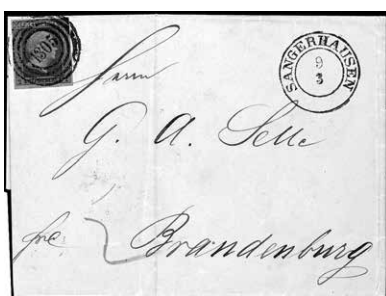 1305
SANGERHAUSEN
9
3
Herrn
G. A. Selle
frc.
Brandenburg